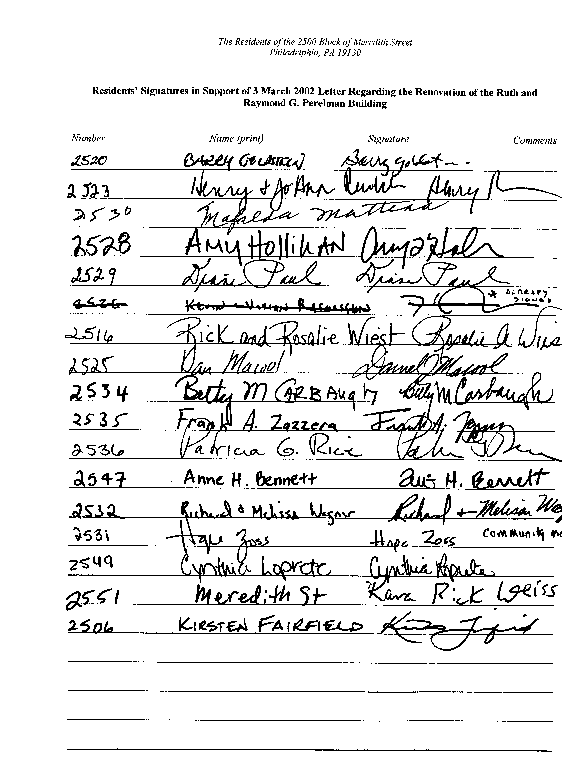 The Residents of the 2500 Block of Meredith Street
Philadelphia, PA 19130
Residents' Signatures in Support of 3 March 2002 Letter Regarding the Renovation of the Ruth and
Raymond G. Perelman Building
Number Name (print) Signature Comments
2520 BARRY
2523 Henry & JoAnn Henry
2530 Mafalda Mattina
2528 AMY HOLLIHAN
2529 Diane Paul Diane Paul
2526 * ALREADY SIGNED
2516 Rick and Rosalie Wiest Rosalie A Wies
2525 Dan Daniel
2534 Betty M CARBAUGH Betty M Carbaugh
2535 Frank A. Zazzera Frank A.
2536 Patricia G. Rice
2547 Anne H. Bennett H. Bennett
2532 Richard & Melissa Wagner Richard + Melissa Wag
2531 Hope Zoss Hope Zoss Community
2549 Cynthia Loprete Cynthia Loprete
2551 Meredith St Kara Rick Weiss
2506 KIRSTEN FAIRFIELD